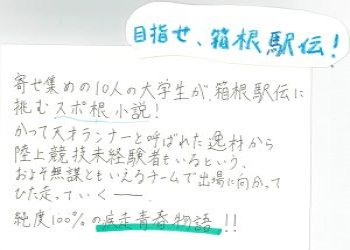 目指せ、箱根駅伝!
寄せ集めの10人の大学生が、箱根駅伝に
挑むスポ根小説!
かつて天才ランナーと呼ばれた逸材から
陸上競技未経験者もいるという、
およそ無謀ともいえるチームで出場に向かって
ひた走っていく――。
純度100%の疾走青春物語!!